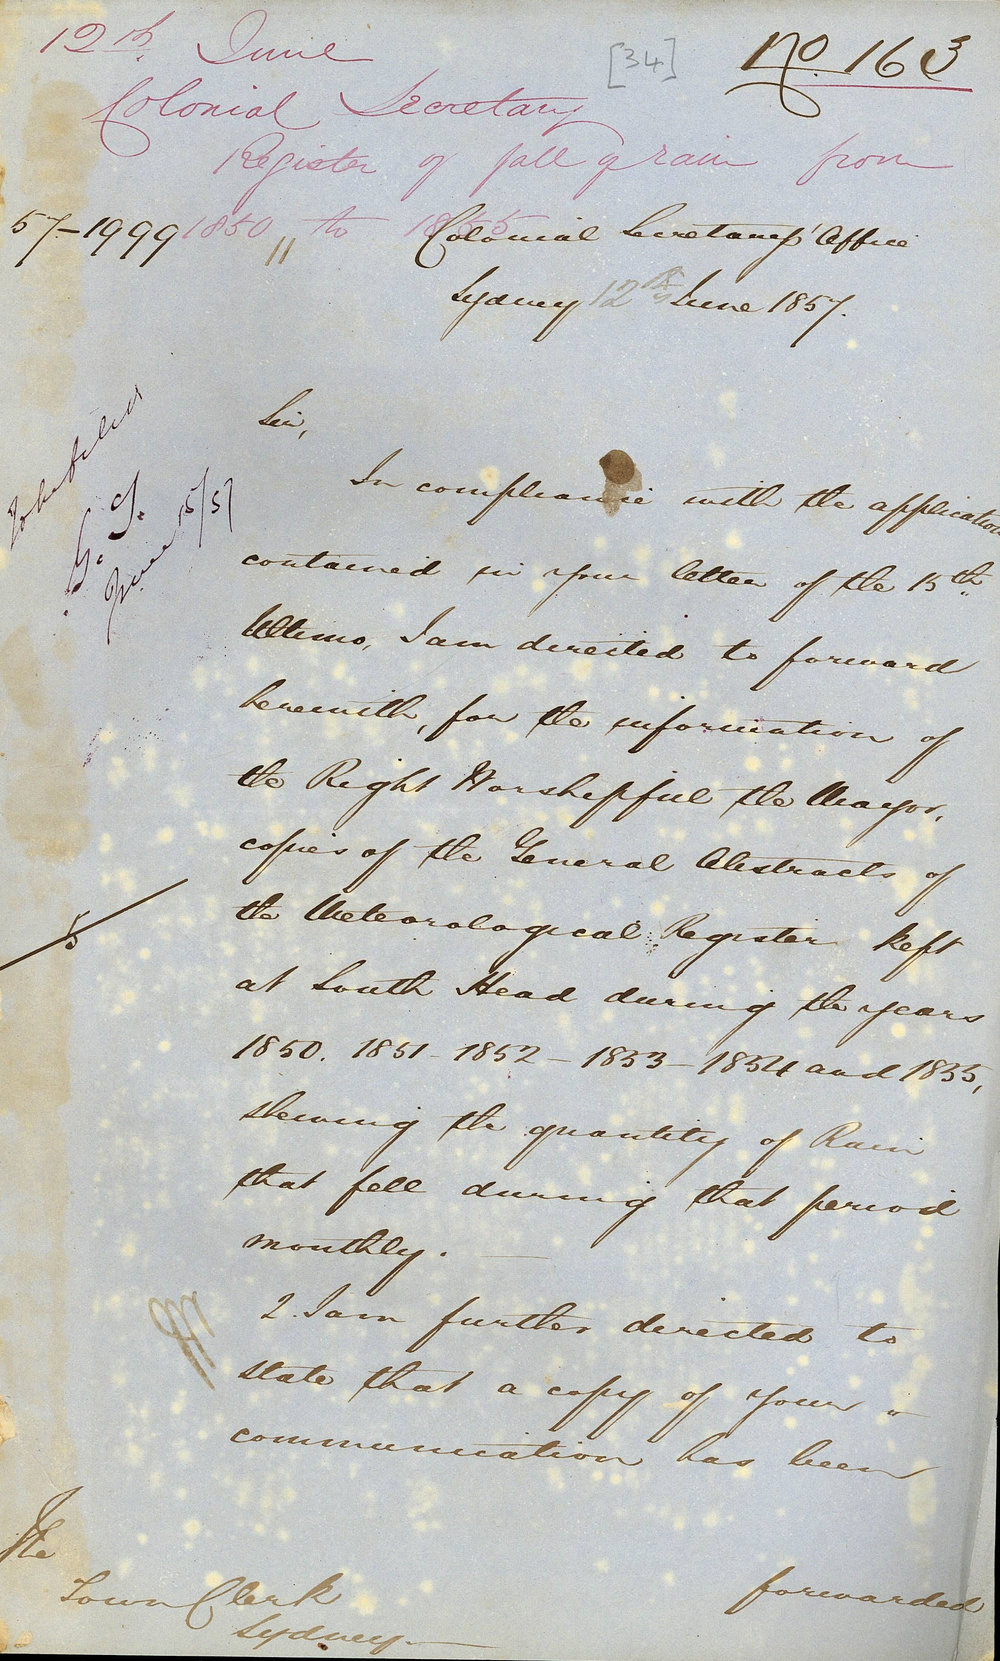 12th June
[34]
No. 163
Colonial Secretary
Register of fall of rain from
1850 to 1855
57-1999 "
Colonial Secretary's Office
Sydney 12th June 1857.
To be filed
G. J.
June 15/57
Sir,
In compliance with the application
contained in your letter of the 15th
Ultimo, I am directed to forward
herewith, for the information of
the Right Worshipful the Mayor,
copies of the General Abstracts of
the Meteorological Register kept
5
at South Head during the years
1850. 1851 - 1852 - 1853 - 1854 and 1855,
shewing the quantity of Rain
that fell during that period
monthly. —
2. I am further directed to
state that a copy of your "
communication has been
The
Town Clerk
Sydney —
forwarded